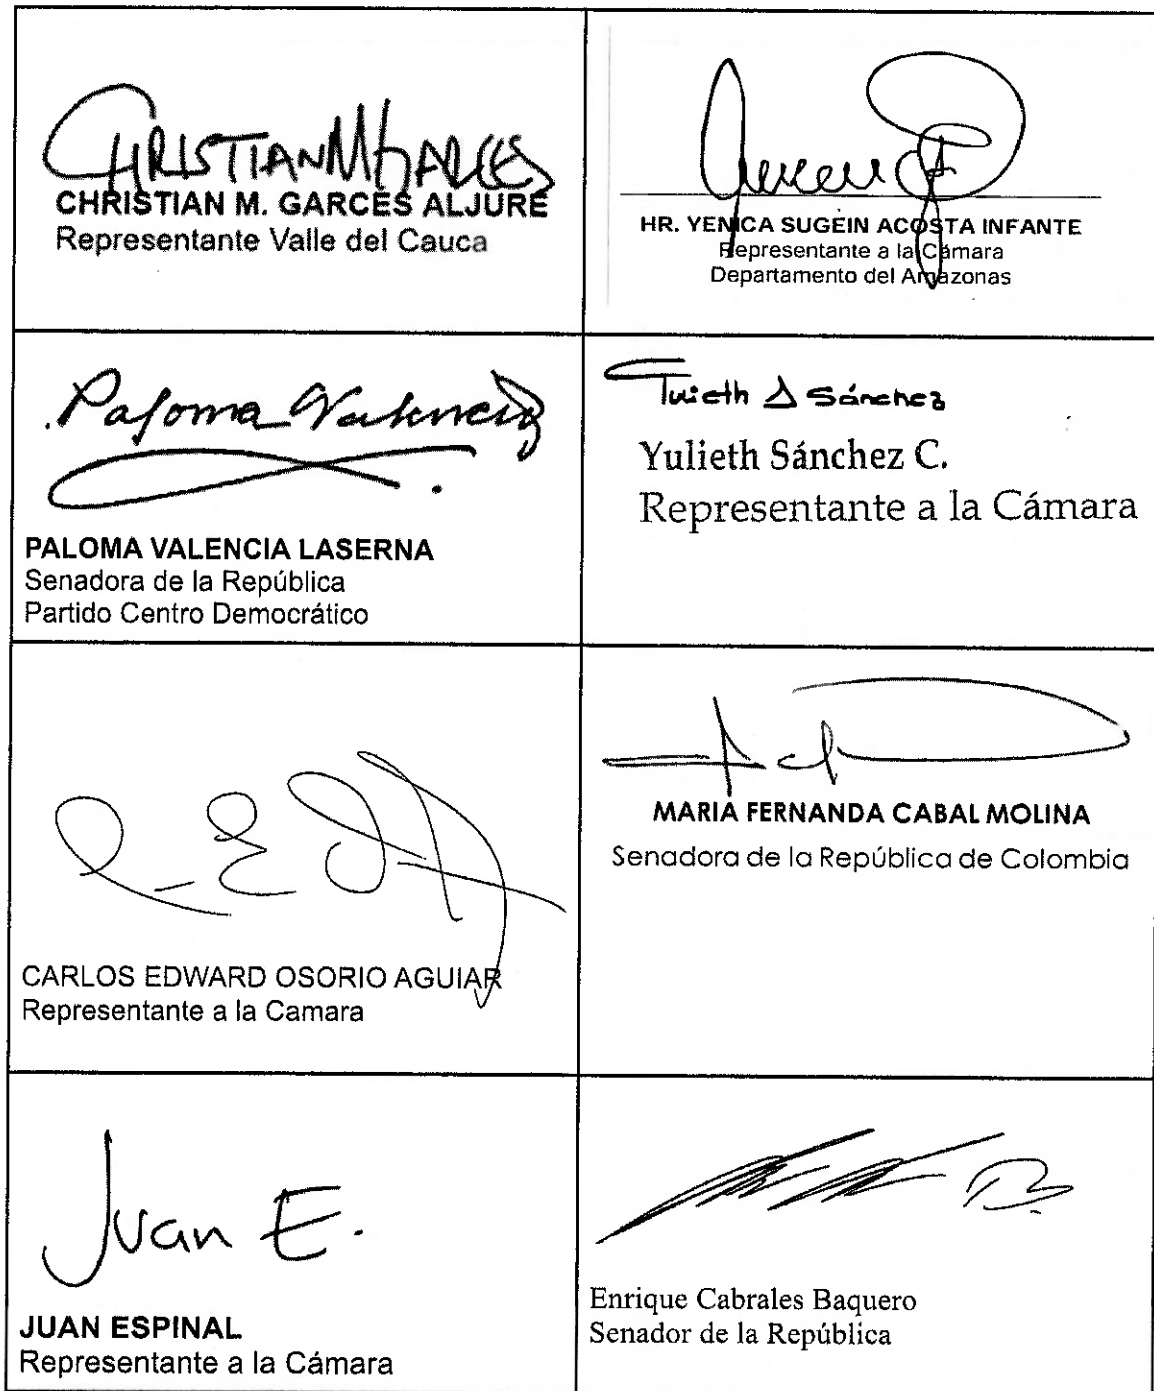 CHRISTIAN M GARCES
CHRISTIAN M. GARCÉS ALJURE
Representante Valle del Cauca
HR. YENICA SUGEIN ACOSTA INFANTE
Representante a la Cámara
Departamento del Amazonas
Paloma Valencia
PALOMA VALENCIA LASERNA
Senadora de la República
Partido Centro Democrático
Sánchez
Yulieth Sánchez C.
Representante a la Cámara
CARLOS EDWARD OSORIO AGUIAR
Representante a la Camara
MARIA FERNANDA CABAL MOLINA
Senadora de la República de Colombia
Juan E.
JUAN ESPINAL
Representante a la Cámara
Enrique Cabrales Baquero
Senador de la República